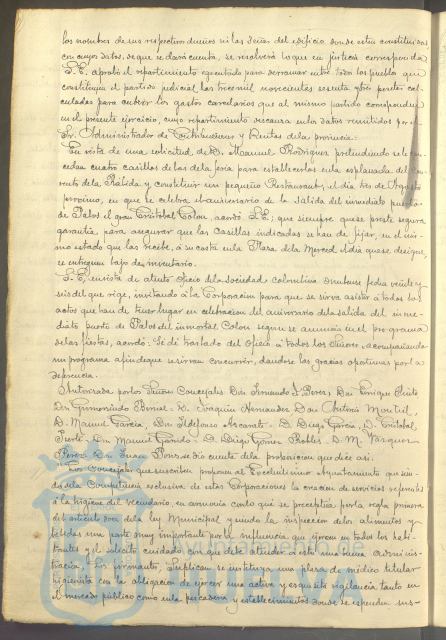 los nombres de sus respectivos dueños ni las señas del edificio donde estén constituidas
con cuyos datos, de que se dará cuenta, se resolverá lo que en justicia corresponda
S.E. aprobó el repartimiento ejecutado para derramar entre todos los pueblos que
constituyen el partido judicial, las tres mil novecientas sesenta y tres pesetas cal-
culadas para cubrir los gastos carcelarios que al mismo partido corresponden
en el presente ejercicio, cuyo repartimiento descansa en los datos remitidos por el
Sr. Administrador de Contribuciones y Rentas de la provincia.
En vista de una solicitud de D. Manuel Rodriguez pretendiendo se le con-
cedan cuatro casillas de las de la feria para establecerlas en la esplanada del Con-
vento de la Rabida y constituir un pequeño Restaurant, el dia tres de Agosto
proximo, en que se celebra el aniversario de la salida del inmediato puerto
de Palos el gran Cristobal Colon, acordó S.E.; que siempre que se preste segura
garantía, para asegurar que las casillas indicadas se han de fijar, en el mis-
mo estado que las recibe, á su costa en la Plaza de la Merced el dia que se designe,
se entreguen bajo de inventario.
S.E. en vista de atento oficio de la sociedad colombina Onubense fecha veinte y
seis del que rige, invitando á la Corporacion para que se sirva asistir a todos los
actos que han de tener lugar en celebracion del aniversario de la salida del inme-
diato puerto de Palos del inmortal Colon segun se anuncia en el programa
de las fiestas, acordó: Se dé traslado del oficio á todos los Señores, acompañando
un programa afin de que se sirvan concurrir, dandose las gracias oportunas por la
deferencia.
Autorizada por los Señores Concejales Don Fernando de la Perez, Don Enrique
Don Gumersindo Bernal - D. Joaquin Hernandez Don Antonio Montiel,
D. Manuel Garcia, Don Ildefonso D. Diego Garcia, D. Cristobal
Don Manuel Garrido - D. Diego Gomez Robles D. M. Vazquez
Perez Don Juan se dio cuenta de la proposicion que dice asi:
"Los Concejales que suscriben proponen al Excelentisimo Ayuntamiento que sien-
do de la Competencia exclusiva de estas Corporaciones la creacion de servicios referentes
á la higiene del vecindario, en armonia con lo que se preceptúa por la regla primera
del articulo de la ley Municipal y siendo la inspeccion de los alimentos y
bebidas una parte muy importante por la influencia que ejercen en todos los habi-
tantes y el solícito cuidado con que debe atender a esta una buena adminis-
tracion, los firmantes, Suplican se instituya una plaza de médico titular
higienista con la obligacion de ejercer una activa y esquisita vigilancia tanto en
el mercado público como en la pescaderia y establecimientos donde se espenden sus-